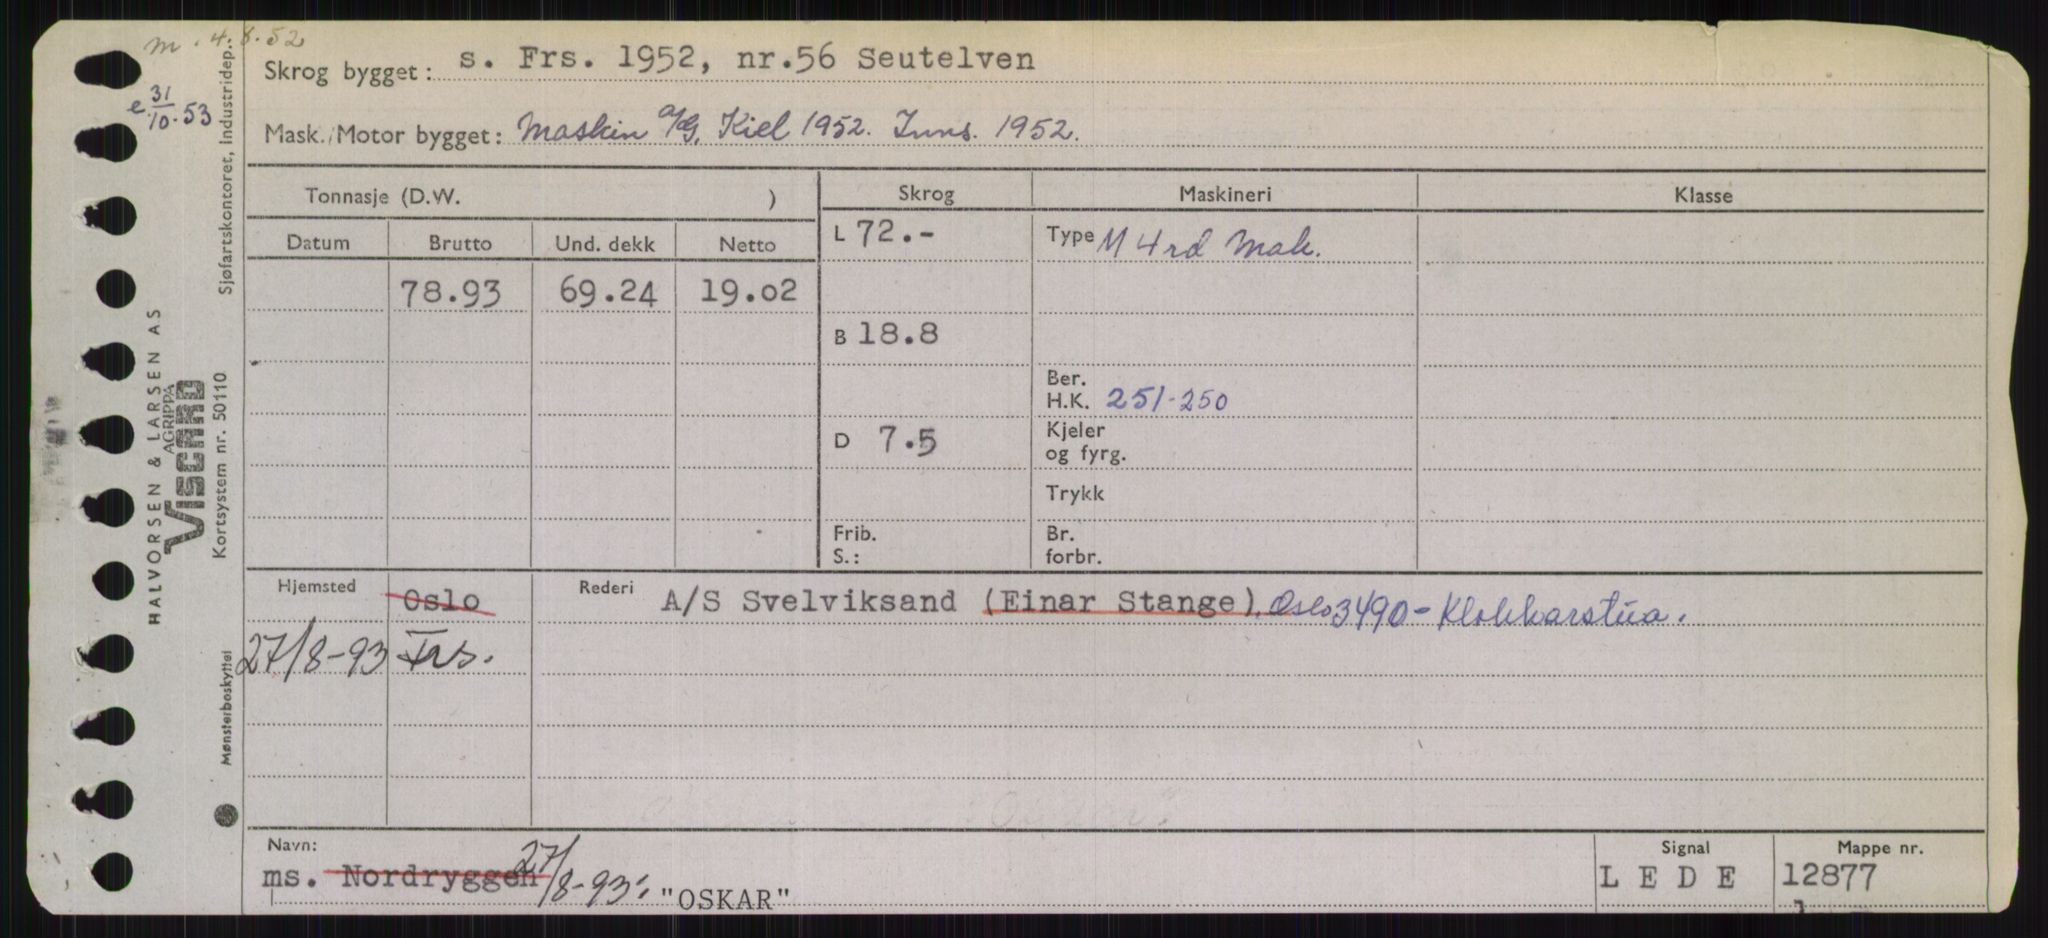 m. 4.8.52
e 31/10.53
Skrog bygget: s. Frs. 1952, nr.56 Seutelven
Mask./Motor bygget: Maskin A/G, Kiel 1952. Inns. 1952.
Tonnasje (D.W. )
Skrog
Maskineri
Klasse
Datum Brutto Und. dekk Netto
L 72.-
Type M 4rd Mak.
78.93 69.24 19.02
B 18.8
Ber.
H.K. 251-250
D 7.5
Kjeler
og fyrg.
Trykk
Frib.
S.:
Br.
forbr.
Hjemsted Oslo
Rederi A/S Svelviksand (Einar Stange), Oslo 3490 - Klokkarstua.
27/8-93 Frs.
Navn:
ms. Nordryggen 27/8-93: "OSKAR"
Signal
LEDE
Mappe nr.
12877
HALVORSEN & LARSEN AS
AGRIPPA
VISCARD
Kortsystem nr. 50110
Sjøfartskontoret, Industridep.
Mønsterbeskyttet